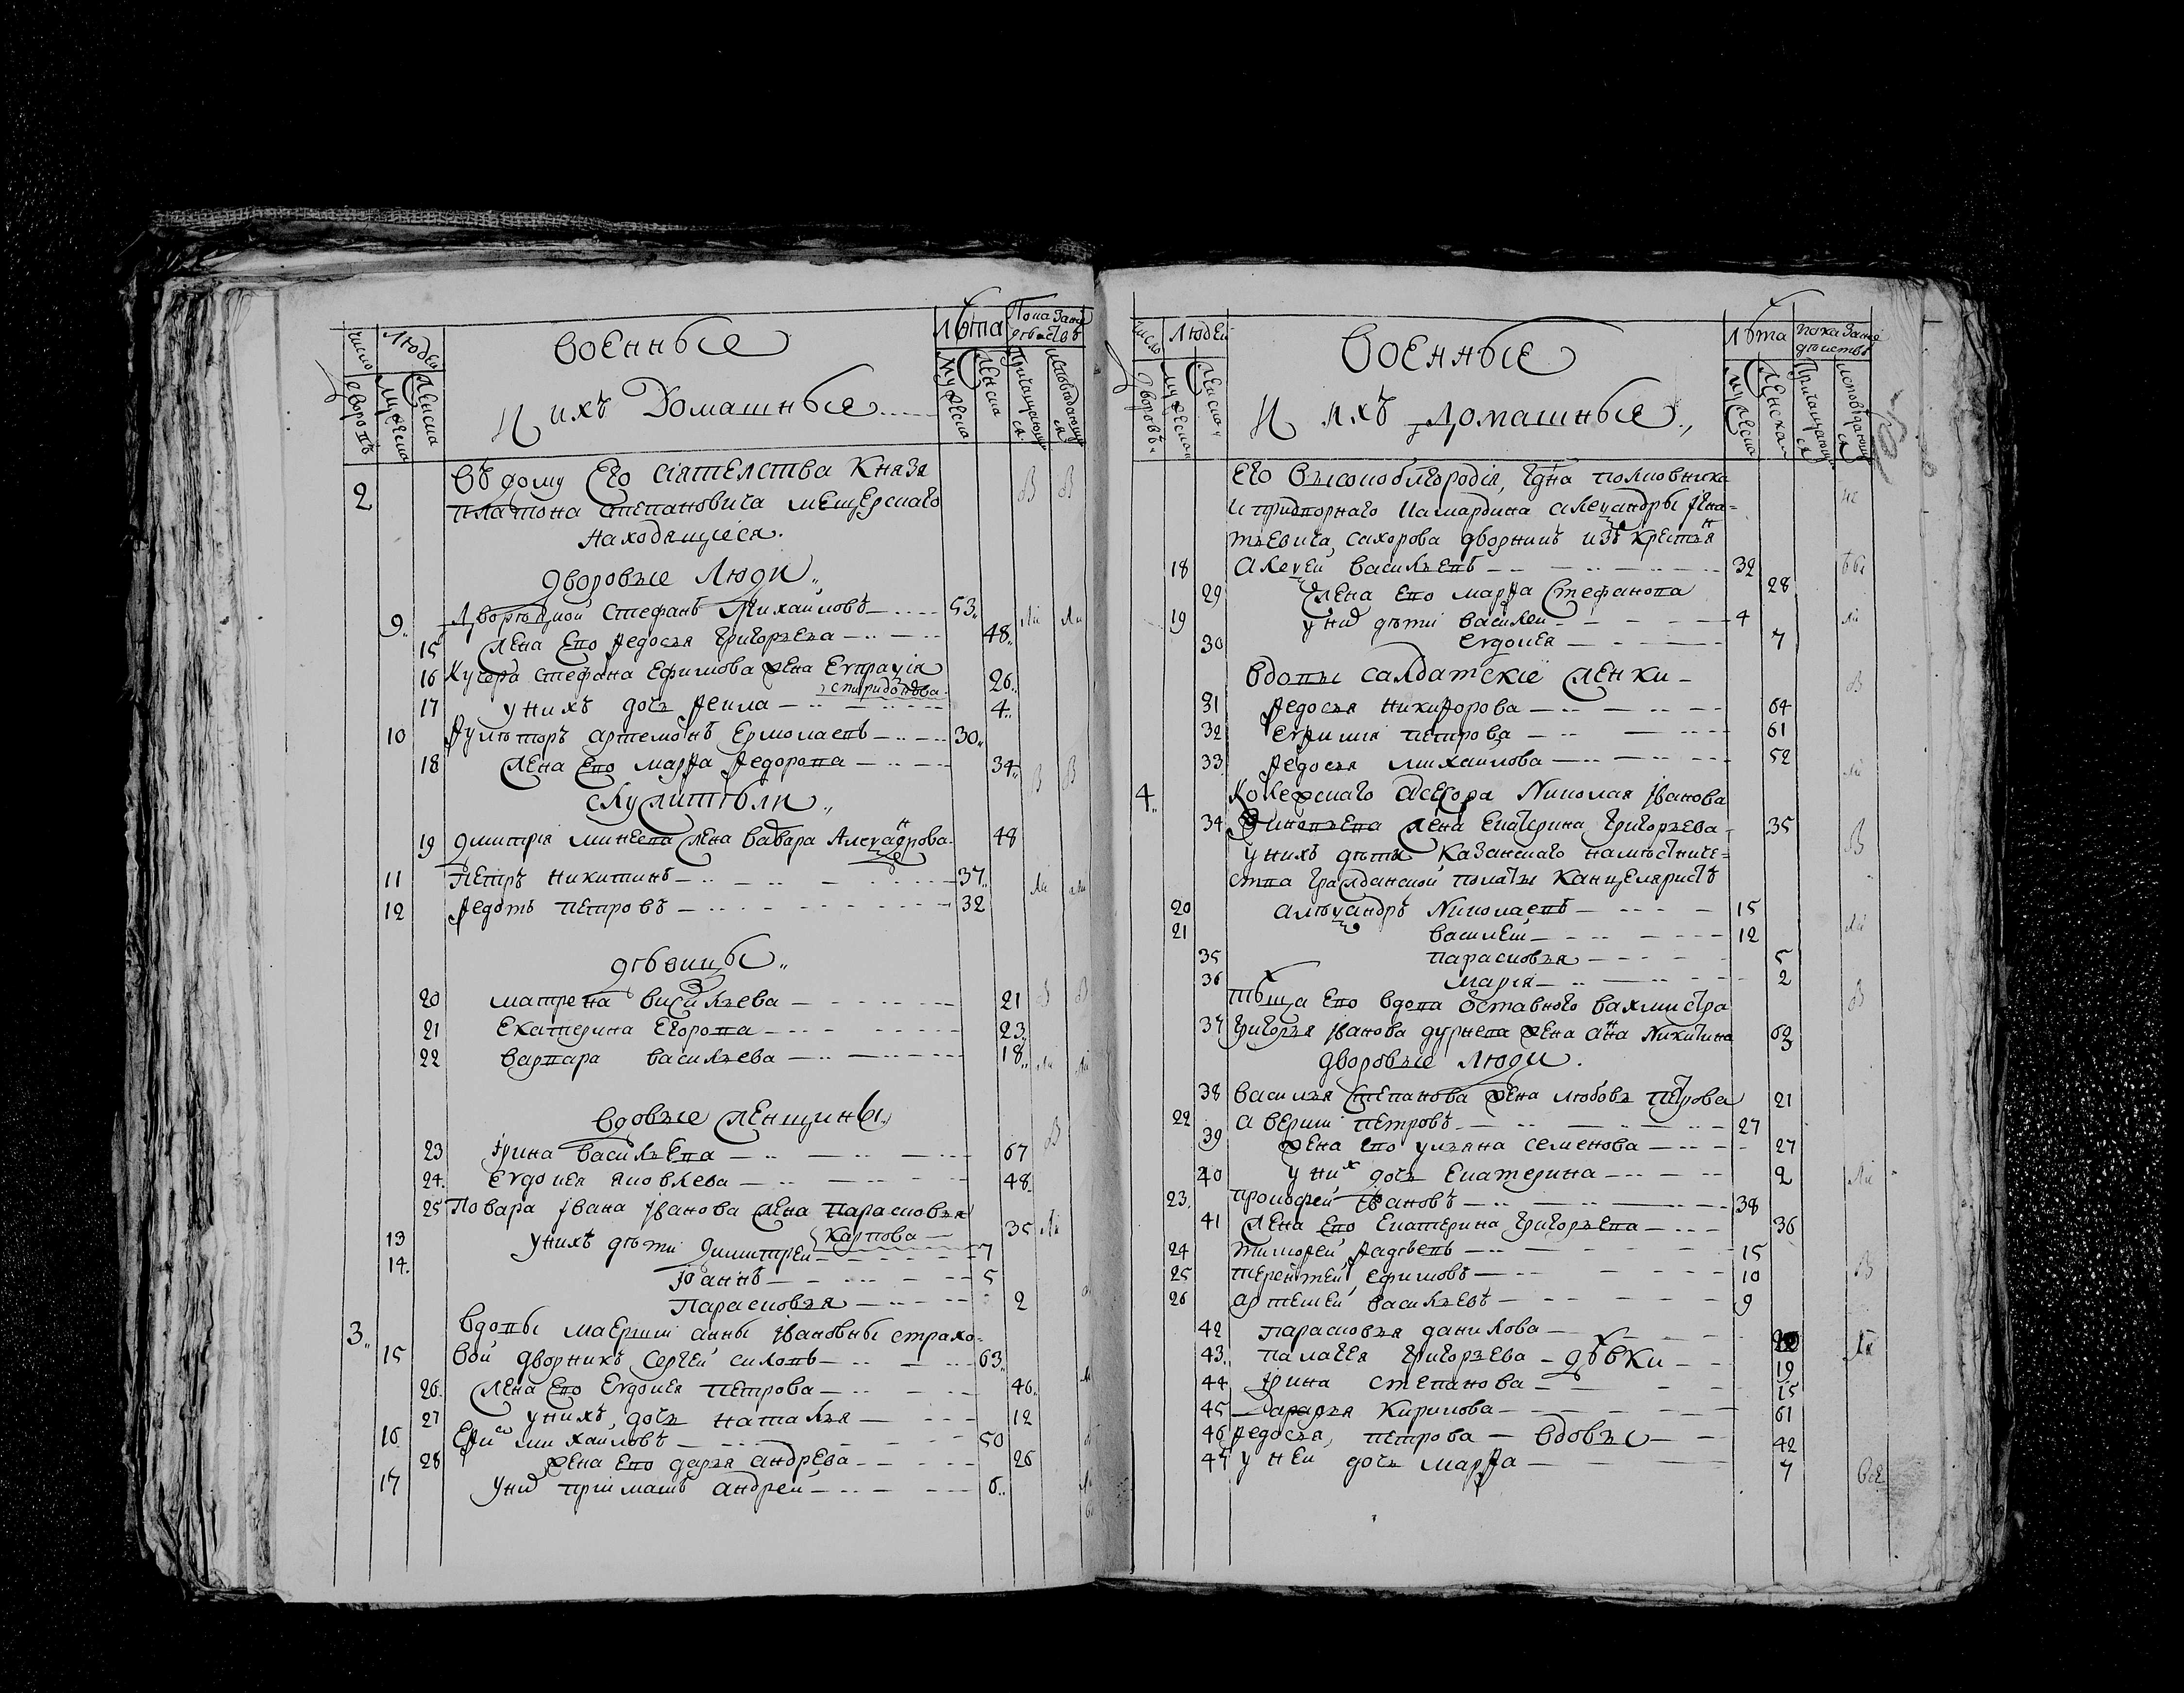 число дворовъ
Людей
мужеска
женска
Военные
И ихъ Домашные
лѣта
мужеска
женска
Показаніе действъ
Причащающися
исповедающися
2 въ дому Его сіятелства Князя
Платона Степановича мещерскаго
находящиеся.
дворовые люди
9 Дворецкой Стефанъ Михайловъ 53
15 жена Ево Федосья Григорьева 48
16 Кучера Стефана Ефимова жена Евпраѯія
спиридонова 26
17 у нихъ дочь Фекла 4
10 Артемонъ Ермолаевъ 30
18 жена Ево марфа Федорова 34
служители
19 дмитрія минеева жена варвара Алеѯандрова 48
11 Петръ Никитинъ 37
12 Федотъ Петровъ 32
девицы
20 матрена васильева 21
21 Екатерина Егорова 23
22 варвара васильева 18
вдовые женщины
23 Ірина васильева 67
24 Евдокея яковлева 48
25 Повара Ивана Иванова жена Парасковья
Карпова 35
13 у нихъ дети Димитрей 7
14 Іоаннъ 5
Парасковья 2
3 вдовы маерши анны Ивановны страхо-
15 вой дворникъ Сергей силовъ 63
26 жена Ево Евдокея Петрова 46
27 у нихъ дочь наталья 12
16 михайловъ 50
28 жена Ево дарья андрева 26
17 у них приймашъ андрей 6
число дворовъ
Людей
мужеска
женска
Военные
И ихъ домашные
лѣта
мужеска
женска
показаніе действъ
Причащающися
исповедающися
Его высокоблгородія, гдна полковника
и придворнаго алеѯандры Игна-
тьевича сахорова дворникъ изъ крестьян
18 Алеѯей васильевъ 32
29 жена Ево марфа Стефанова 28
19 у них дети василей 4
30 Евдокея 7
вдовы салдатскіе женки
31 Федосья Никифорова 64
32 петрова 61
33 Федосья михаилова 52
4 Колежскаго асесора Николая Иванова
34 жена Екатерина Григорьева 35
у нихъ дети Казанскаго наместниче-
ства гражданской полаты канцеляристъ
20 алеѯандръ Николаевъ 15
21 василей 12
35 парасковья 5
36 марія 2
теща Ево вдова оставного вахмистра
37 Григорья Иванова дурнева жена анна Никитина 63
дворовые люди
38 василья степанова жена любовь Петрова 21
22 аверкій петровъ 27
39 жена Ево ульяна семенова 27
40 у них дочь Екатерина 2
23 прокофей Ивановъ 38
41 жена Ево Екатерина Григорьева 36
24 тимофей Фадѣевъ 15
25 терентей ефимовъ 10
26 артемей васильевъ 9
42 парасковья данилова
43 палагея Григорьева - дѣвки 19
44 Ірина степанова 15
45 Дарья Кирилова 61
46 Федосья петрова - вдовы 42
47 у ней дочь марфа 7